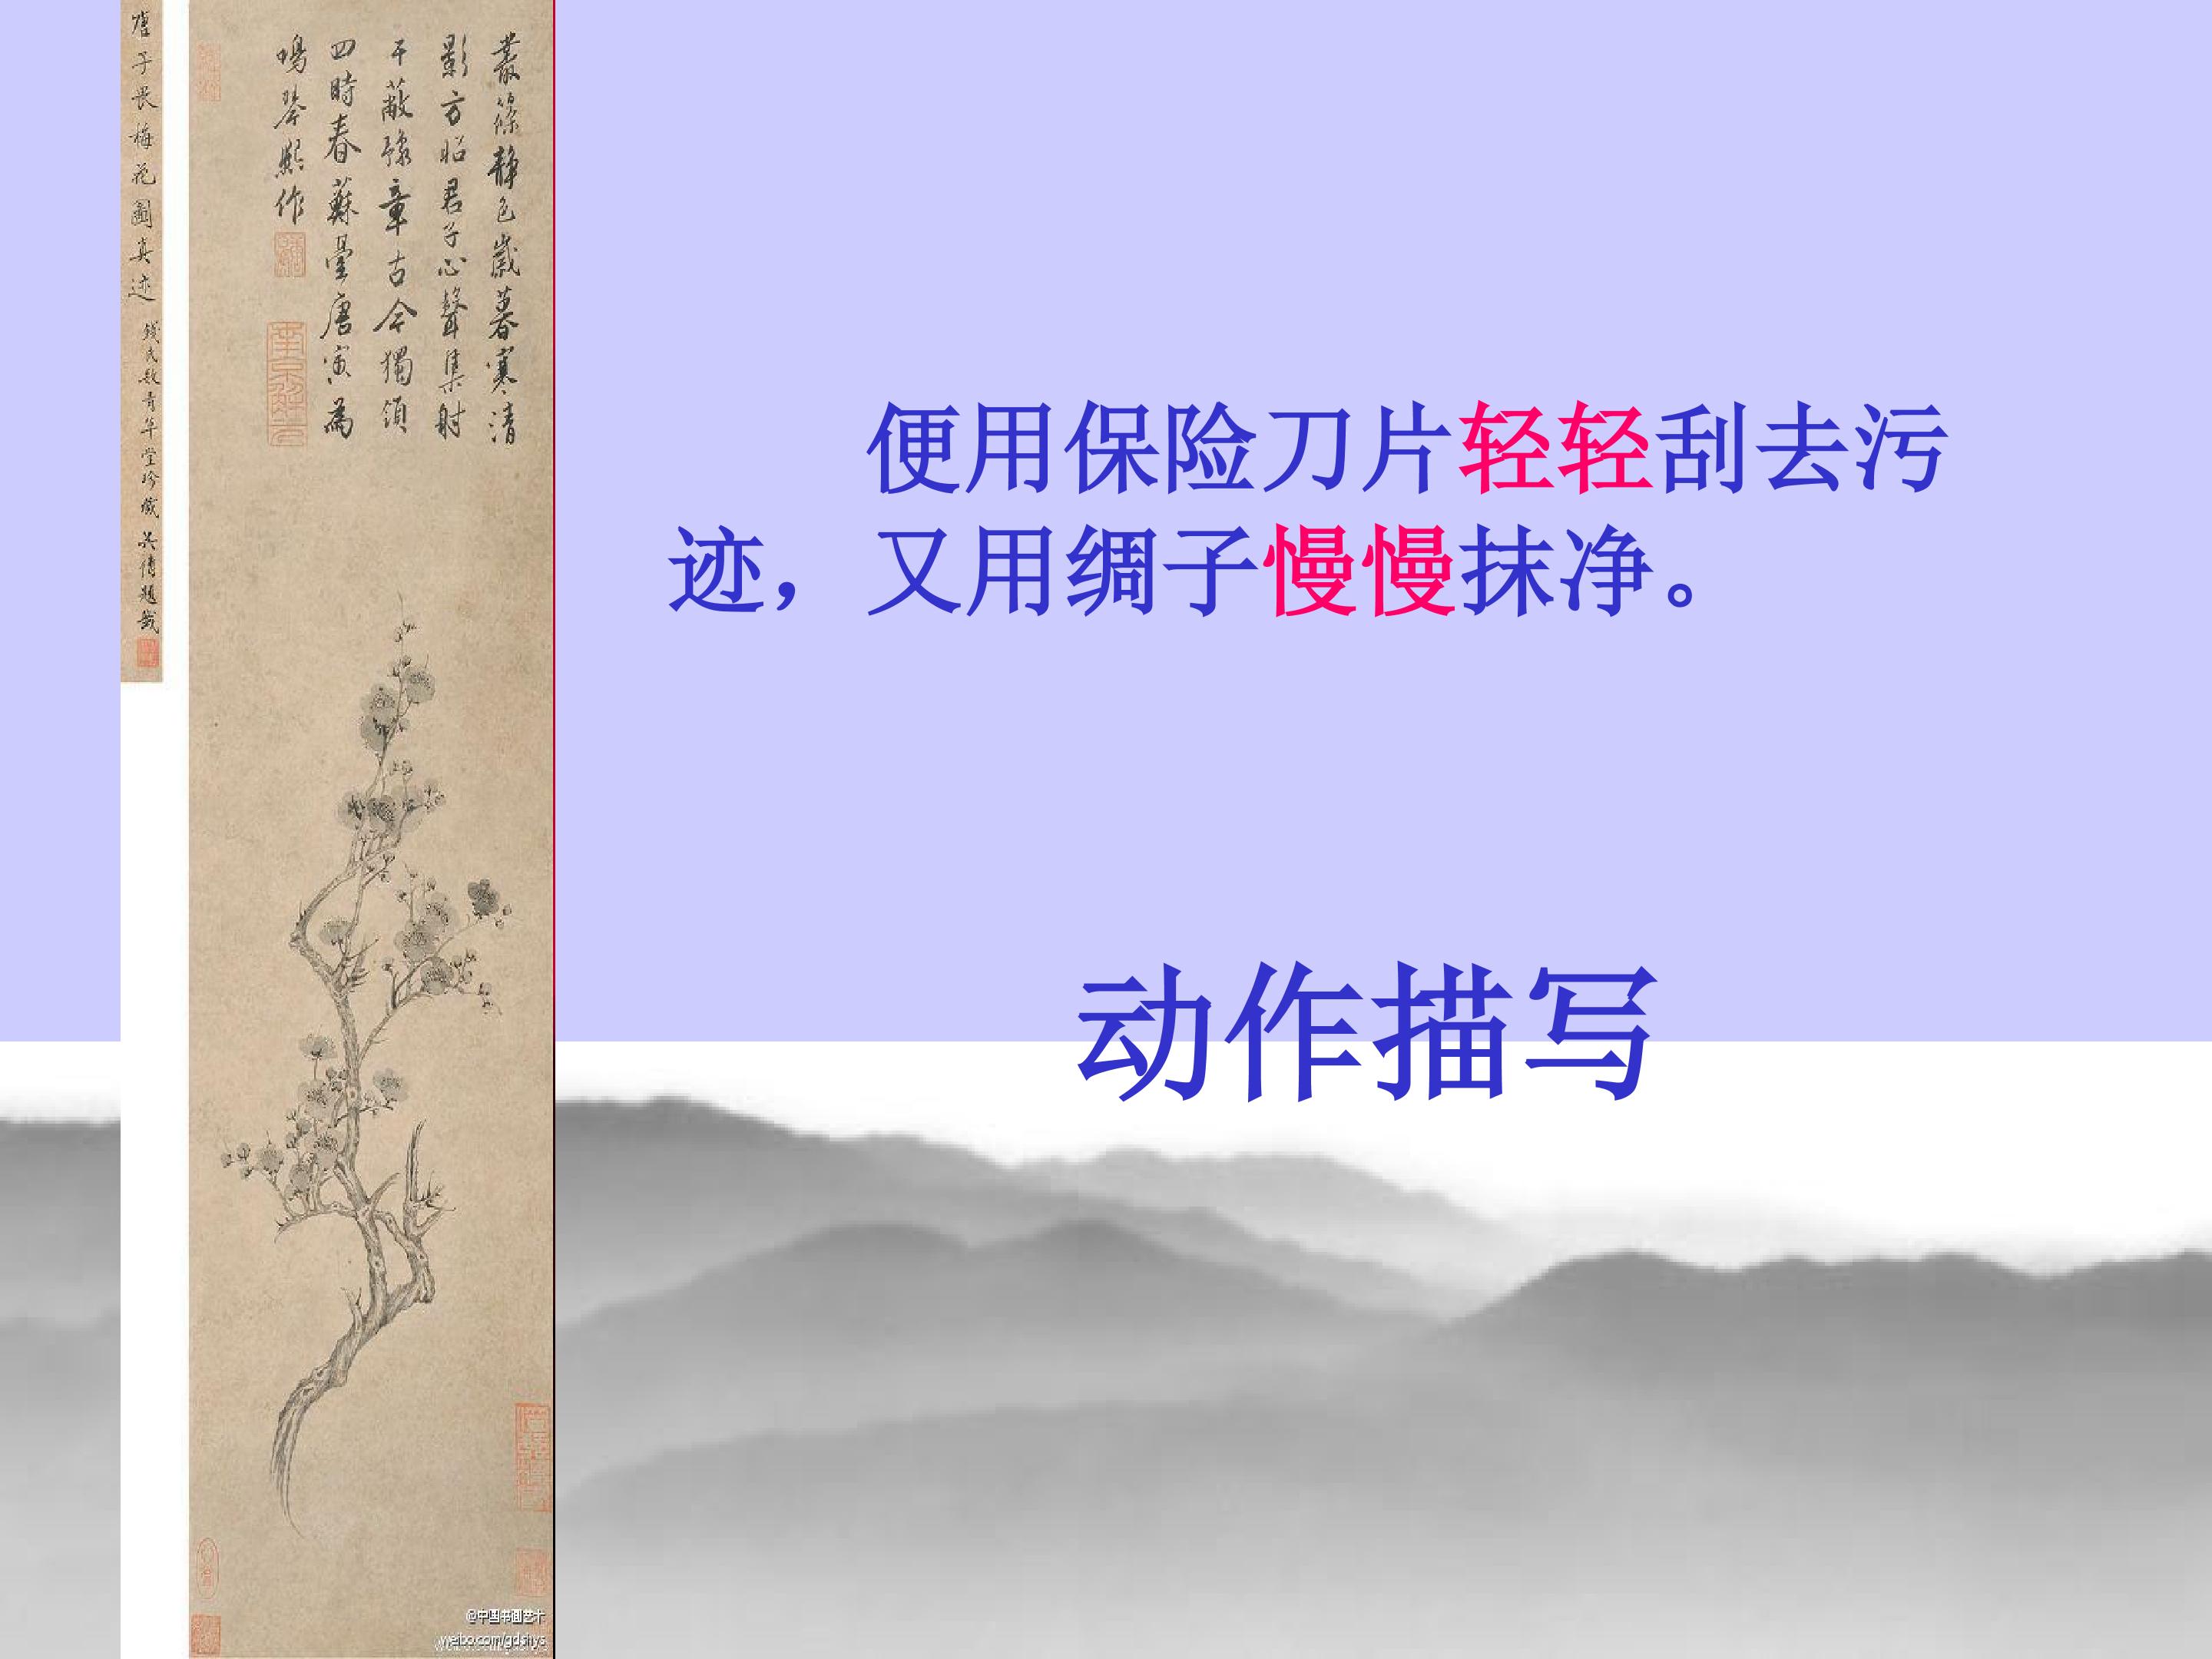 唐子畏梅花圖真迹
錢氏數青草堂珍藏 吴倩題籤
叢篠靜色歲暮寒清
影方昭君子心聲集射
干蔽豫章古今獨領
四時春蘇臺唐寅為
鳴琴熙作
便用保险刀片轻轻刮去污
迹，又用绸子慢慢抹净。
动作描写
@中国书画艺术
weibo.com/gdshys